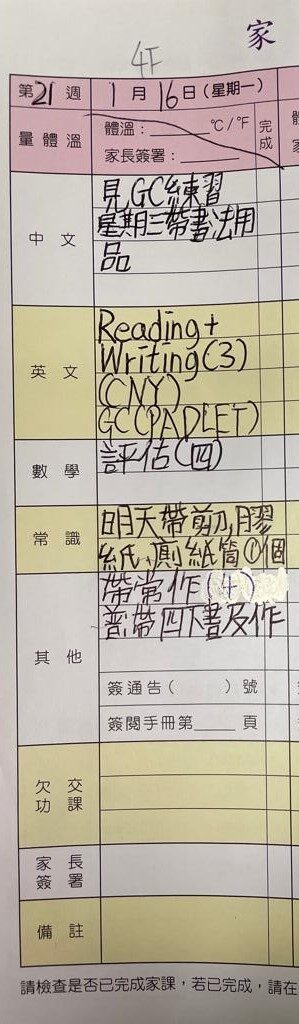 家
4F
第21週 1月16日(星期一)
量體溫 體溫：______°C/°F 完成
家長簽署：______
中文 見GC練習
星期三帶書法用
品
英文 Reading+
Writing(3)
(CNY)
GC(PADLET)
數學 評估(四)
常識 明天帶剪刀,膠
紙,廁紙筒①個
其他 帶常作(4)
普:帶四下書及作
簽通告( )號
簽閱手冊第____頁
欠交功課
家長簽署
備註
請檢查是否已完成家課，若已完成，請在